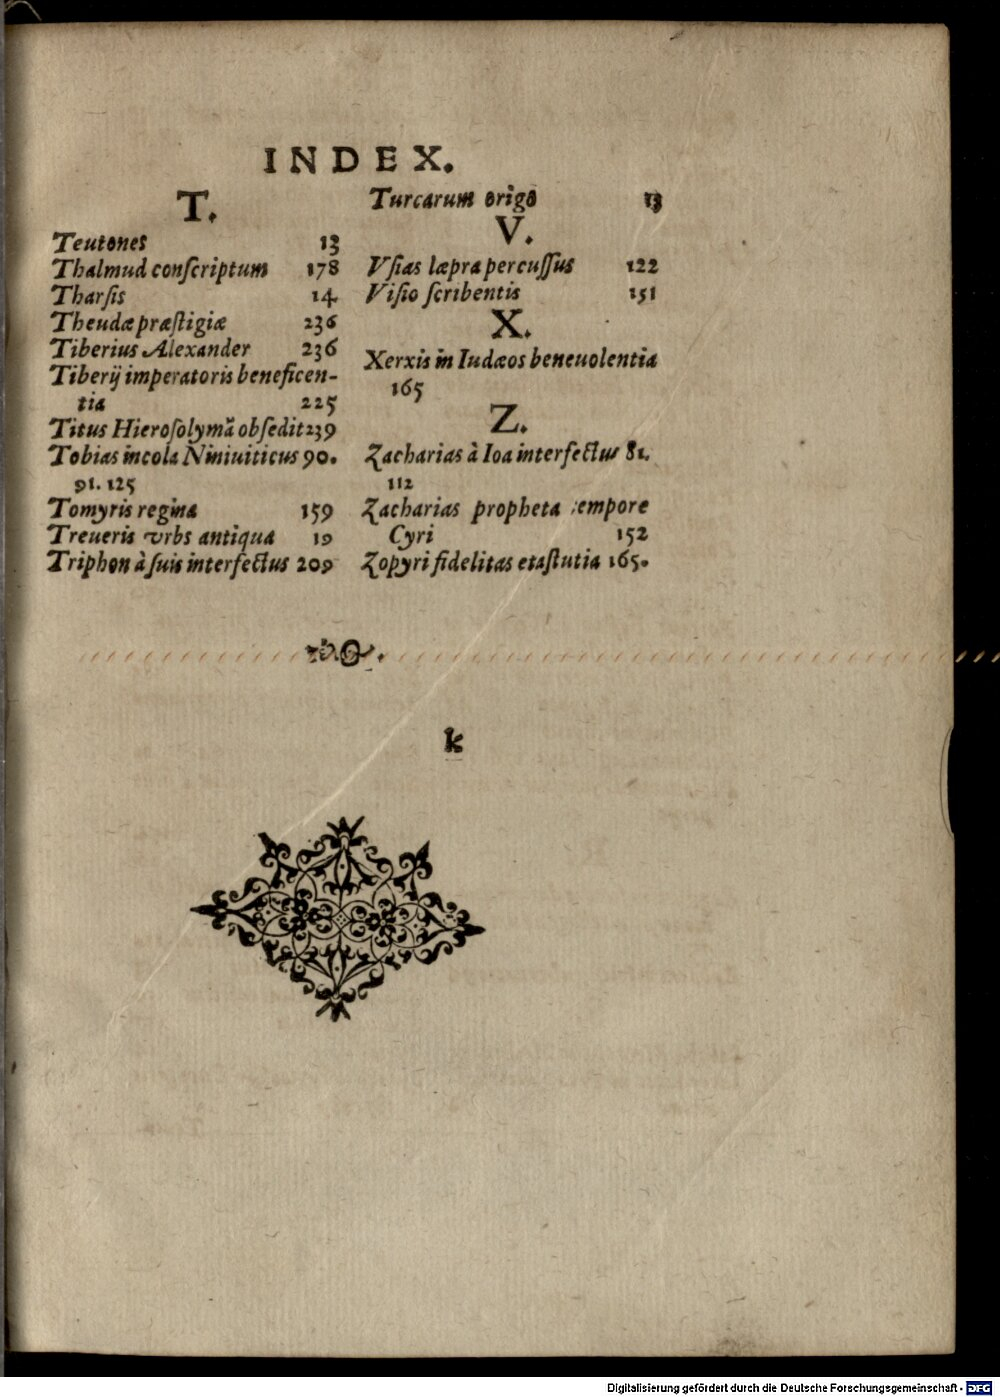 INDEX.
T.
Teutones 13
Thalmud conſcriptum 178
Tharſis 14
Theudæ præſtigiæ 236
Tiberius Alexander 236
Tiberij imperatoris beneficen-
tia 225
Titus Hieroſolymã obſedit 239
Tobias incola Niniuiticus 90.
91. 125
Tomyris regina 159
Treueris vrbs antiqua 19
Triphon à ſuis interfectus 209
Turcarum origo 13
V.
Vſias læpra percuſſus 122
Viſio ſcribentis 151
X.
Xerxis in Iudæos beneuolentia
165
Z.
Zacharias à Ioa interfectus 81.
112
Zacharias propheta tempore
Cyri 152
Zopyri fidelitas et aſtutia 165.
k
Digitalisierung gefördert durch die Deutsche Forschungsgemeinschaft - DFG